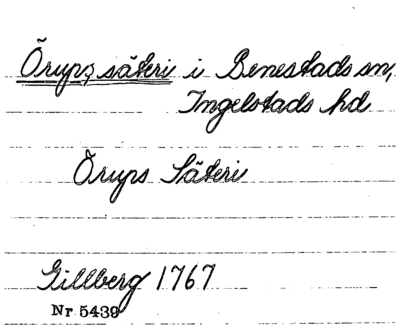 Örups säteri i Benestads sn,
Ingelstads hd
Örups Säteri
Gillberg 1767
Nr 5439